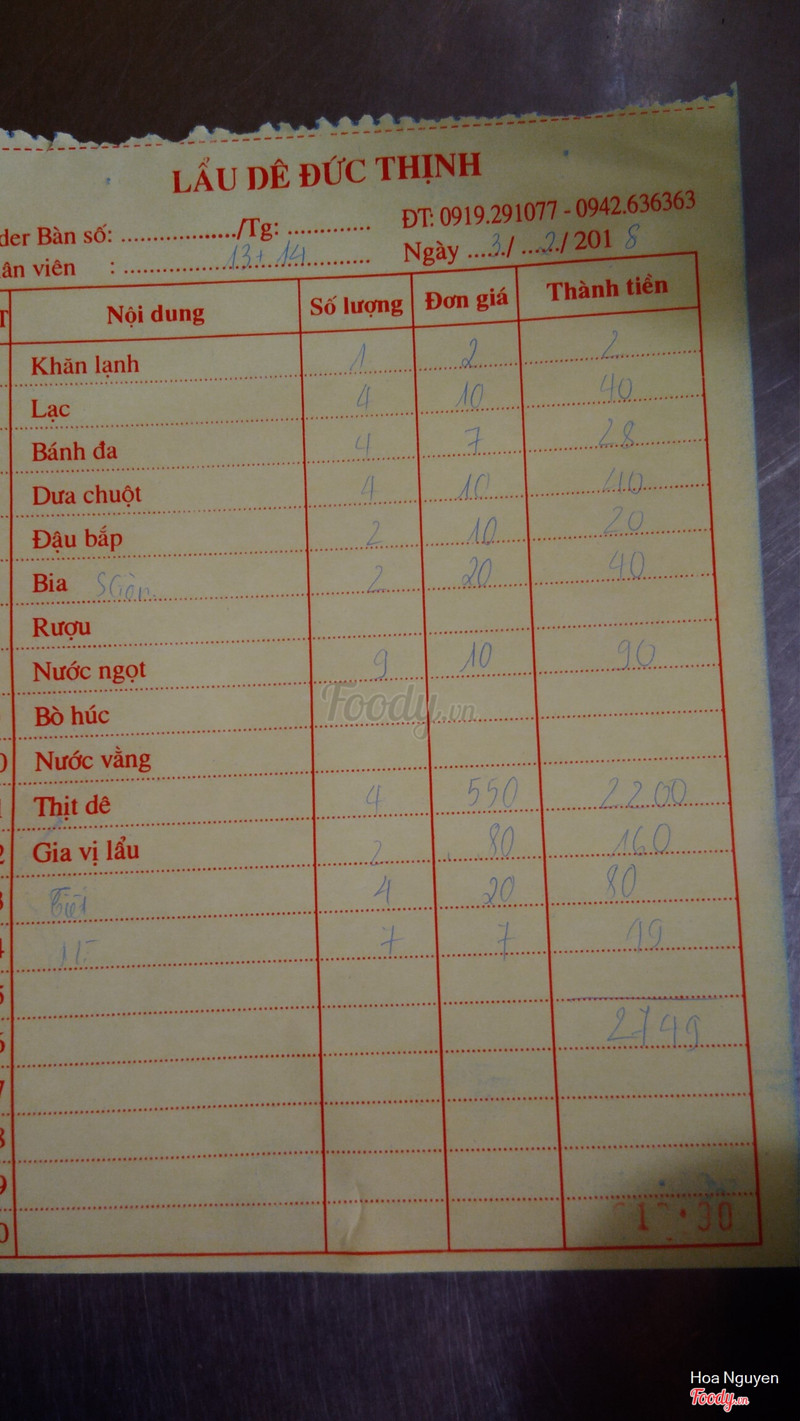 LẨU DÊ ĐỨC THỊNH
der Bàn số: ................../Tg: .............
ĐT: 0919.291077 - 0942.636363
ân viên : 13+14
Ngày ...3./ ...2./ 2018
T Nội dung Số lượng Đơn giá Thành tiền
Khăn lạnh 1 2 2
Lạc 4 10 40
Bánh đa 4 7 28
Dưa chuột 4 10 40
Đậu bắp 2 10 20
Bia SGòn 2 20 40
Rượu
Nước ngọt 9 10 90
Bò húc
0 Nước vằng
1 Thịt dê 4 550 2200
2 Gia vị lẩu 2 80 160
3 Tiết 4 20 80
4 7 7
5
6 2749
7
8
9
0
Foody.vn
Hoa Nguyen
Foody.vn